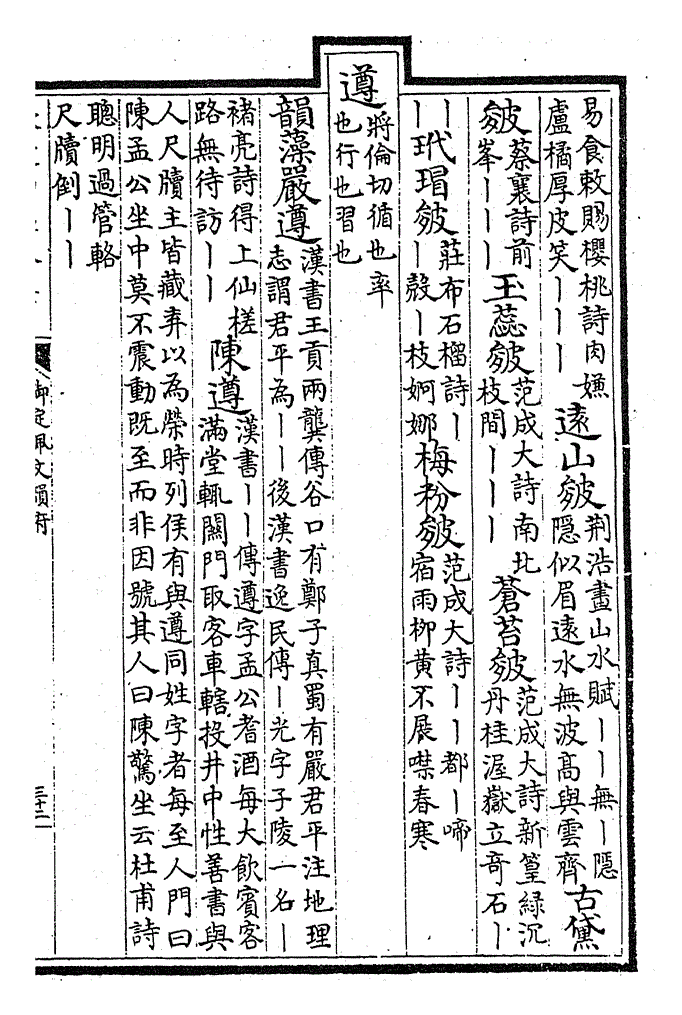 易食敕賜櫻桃詩肉嫌
盧橘厚皮笑丨丨丨
遠山皴
荆浩畫山水賦丨丨無丨隱
隱似眉遠水無波高與雲齊
古黛
皴
蔡襄詩前
峯丨丨丨
玉蕊皴
范成大詩南北
枝間丨丨丨
蒼苔皴
范成大詩新篁緑沉
丹桂渥嶽立奇石丨
丨
丨
玳瑁皴
莊布石榴詩丨
丨殼丨枝婀娜
梅粉皴
范成大詩丨丨都丨啼
宿雨柳黄不展噤春寒
遵
將倫切循也率
也行也習也
韻藻嚴遵
漢書王貢兩龔傳谷口有鄭子真蜀有嚴君平注地理
志謂君平為丨丨後漢書逸民傳丨光字子陵一名丨
褚亮詩得上仙槎
路無待訪丨丨
陳遵
漢書丨丨傳遵字孟公耆酒每大飲賓客
滿堂輒關門取客車轄投井中性善書與
人尺牘主皆藏弆以為榮時列侯有與遵同姓字者每至人門曰
陳孟公坐中莫不震動既至而非因號其人曰陳驚坐云杜甫詩
聰明過管輅
尺牘倒丨丨
御定佩文韻府
三十二